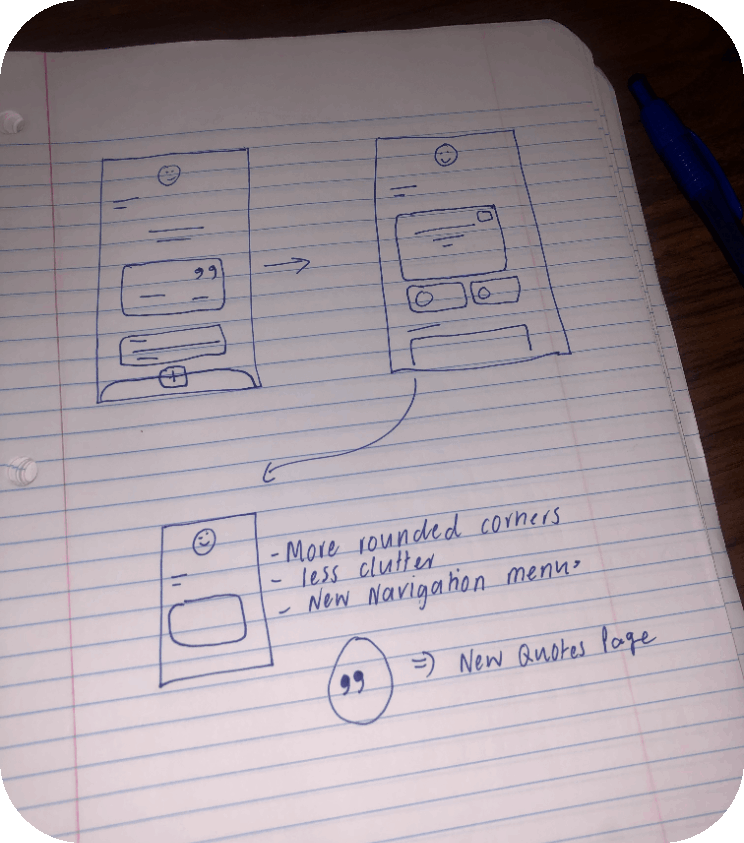 - More rounded corners
- less clutter
- New Navigation menu.
⇒ New Quotes Page